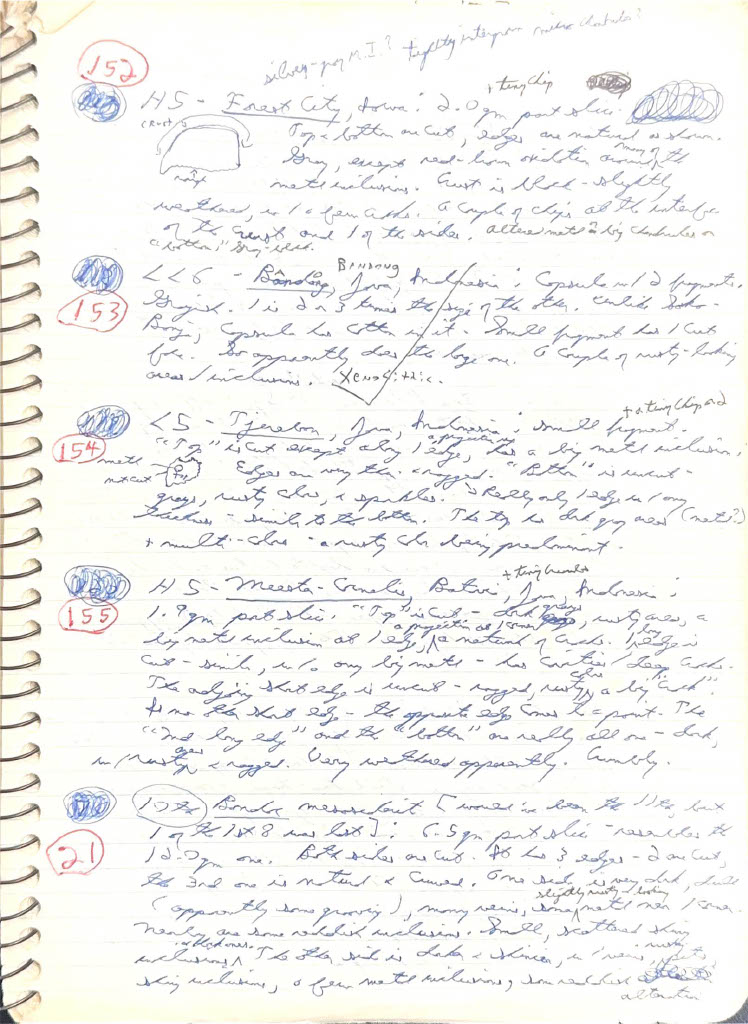 silvery-gray M.I.? tightly intergrown micro chondrules?
152
+ tiny chip
H5 - Forest City, Iowa: 2.0 gm part slice.
crust
Top & bottom are cut, edges are natural as shown.
many of the
Gray, except red-brown oxidation around
metal inclusions. Crust is black - slightly
weathered, w/ a few cracks. A couple of chips at the interface
of the crust and 1 of the sides. altered metal big chondrules on
"bottom," gray-black.
Bandong
LL6 - Bandong, Java, Indonesia: Capsule w/ 2 fragments.
153
Grayish. 1 is 2 or 3 times the size of the other. Unlike Soko-
Banja, capsule has cotton in it. Small fragment has 1 cut
face. So apparently does the large one. A couple of rusty-looking
areas/inclusions. Xenolithic.
+ a tiny chip
L5 - Tjerebon, Java, Indonesia: small fragment.
154
"Top" is cut except along 1 edge, has a big metal inclusion.
metal
not cut
Edges are very thin & ragged. "Bottom" is uncut -
grays, rusty color, & sparkles. Really only 1 edge w/ any
thickness - similar to the bottom. The top has dark gray areas (metal?)
+ multi-color - a rusty color being predominant.
+ tiny crumbs
H5 - Meester-Cornelis, Batavia, Java, Indonesia:
155
1.9 gm part slice. "Top" is cut - dark grays, rusty areas, a
a projection at 1 corner
big metal inclusion at 1 edge, a network of cracks. 1 long edge is
cut - similar, w/o any big metal - has cavities/deep cracks.
The adjoining short edge is uncut - ragged, rusty color, a big "crack".
No other short edge - the opposite edge comes to a point. The
"2nd long edge" and the "bottom" are really all one - dark,
w/ rusty areas & ragged. Very weathered apparently. Crumbly.
Bondoc mesosiderite [would've been the 11th, but
1 of the 1st 8 was lost]: 6.5 gm part slice - resembles the
21
12.7 gm one. Both sides are cut. It has 3 edges - 2 are cut,
the 3rd one is natural & curved. One side is very dark, dull
slightly rusty looking
(apparently some grooving), many veins, some metal near 1 corner.
Nearby are some reddish inclusions. Small, scattered shiny
inclusions. The other side is darker & shinier, w/ veins, rusty
shiny inclusions, a few metal inclusions, some reddish
alteration